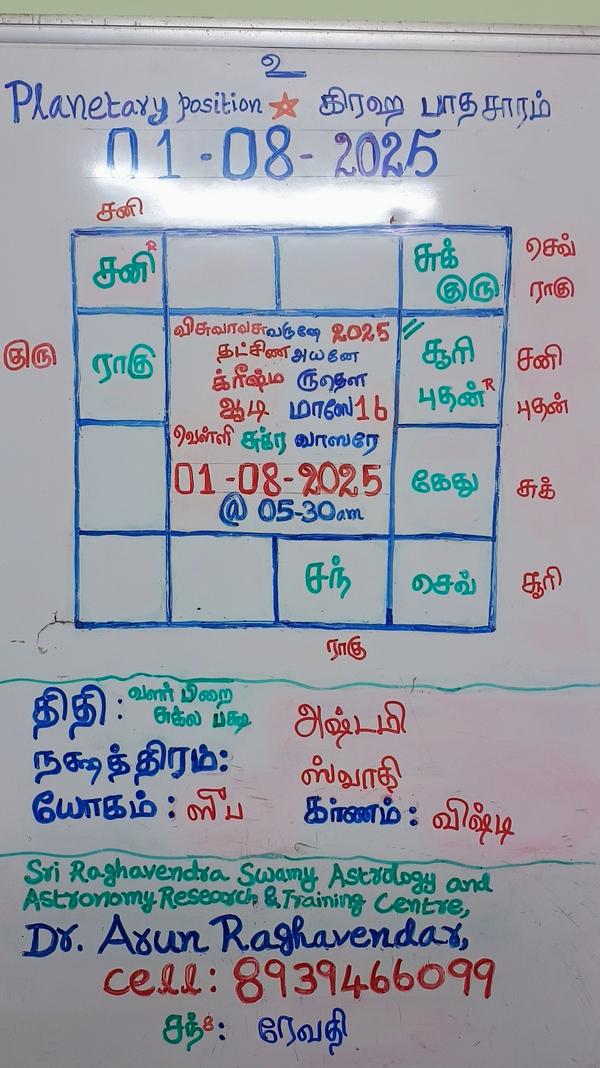 உ
Planetary position கிரஹ பாதசாரம்
01-08-2025
சனி
சனி R
சுக்
குரு
செவ்
ராகு
குரு
ராகு
விசுவாவசு வருஷே 2025
தட்சிண அயனே
க்ரீஷ்ம ருதௌ
ஆடி மாஸே 16
வெள்ளி சுக்ர வாஸரே
01-08-2025
@ 05-30am
சூரி
புதன் R
சனி
புதன்
கேது
சுக்
சந்
செவ்
சூரி
ராகு
திதி : வளர் பிறை
சுக்ல பக்ஷ
அஷ்டமி
நக்ஷத்திரம்:
ஸ்வாதி
யோகம் : ஸுப கர்ணம் : விஷ்டி
Sri Raghavendra Swamy Astrology and
Astronomy Research & Training Centre,
Dr. Arun Raghavendar,
cell: 8939466099
சந் 8 : ரேவதி